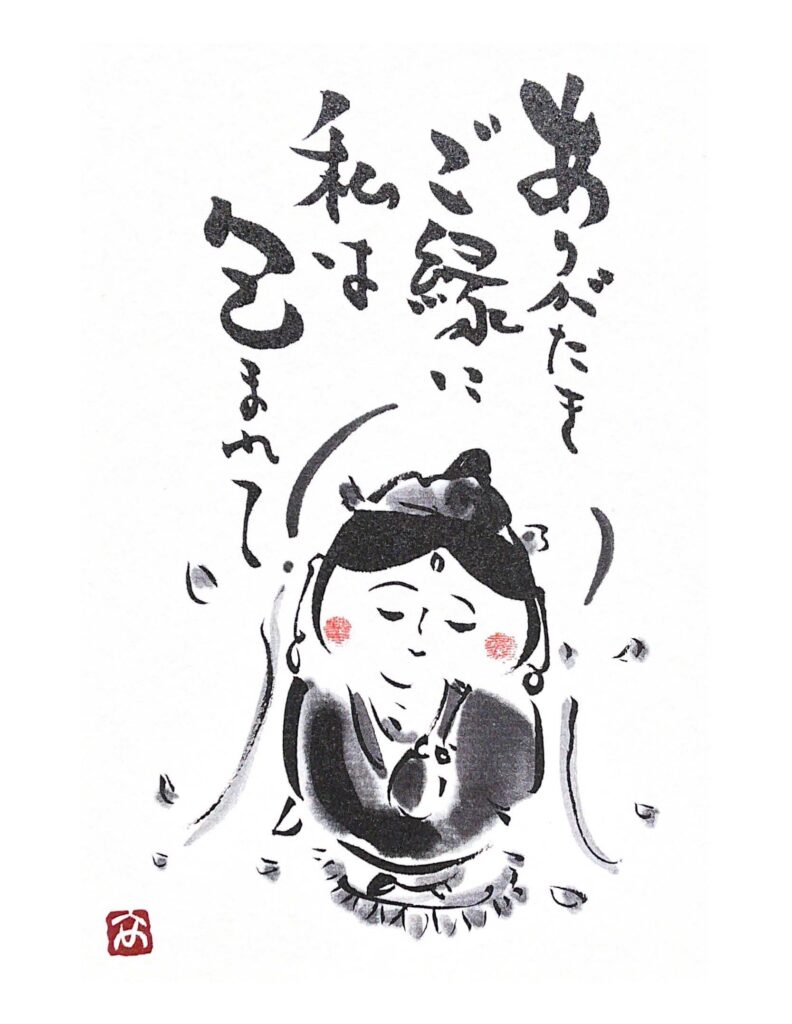 ありがたき
ご縁に
私は
包まれて